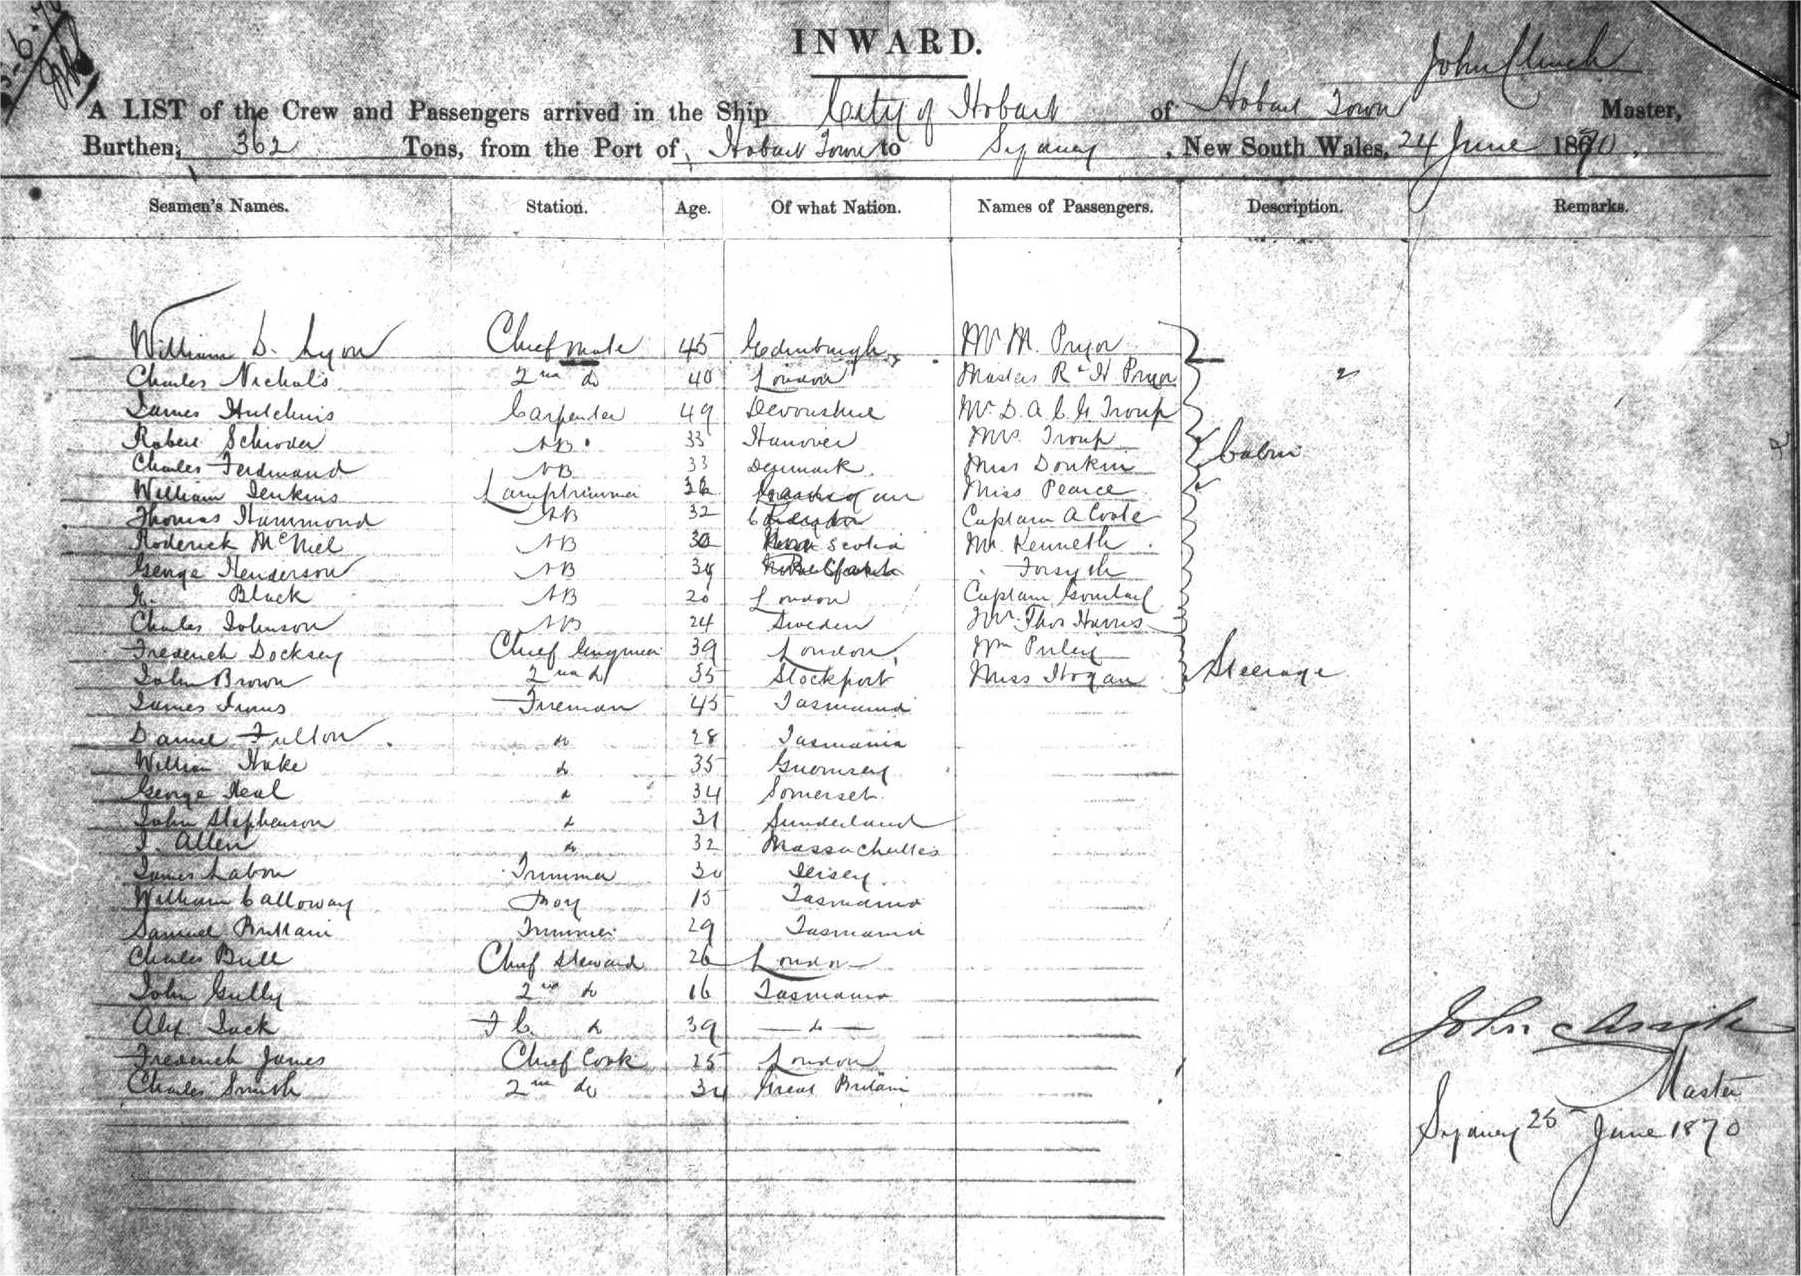 25-6-70
INWARD.
John Clinch
A LIST of the Crew and Passengers arrived in the Ship City of Hobart of Hobart Town Master,
Burthen, 362 Tons, from the Port of Hobart Town to Sydney, New South Wales, 24 June 1870.
Seamen's Names. Station. Age. Of what Nation. Names of Passengers. Description. Remarks.
William D. Lyon Chief Mate 45 Edinburgh Mr M. Pryor
Charles Nichols 2nd do 40 London Masters R & H Pryor 2
James Hutchins Carpenter 49 Devonshire Mr. D. A. C. G. Troup
Robert Schroder AB 33 Hanover Mrs. Troup Cabin
Charles Ferdinand AB 33 Denmark Miss Donkin
William Jenkins Lamptrimmer Miss Pearce
Thomas Hammond AB 32 Captain A Coote
Roderick McNiel AB 30 Nova Scotia Mr Kenneth
George Henderson AB Forsyth
Black AB 20 London Captain
Charles Johnson AB 24 Sweden Mr. Thos Harris
Frederick Docksey Chief Engineer 39 London Wm
John Brown 2nd do 35 Stockport Miss Hogan Steerage
James Fireman 45 Tasmania
Daniel Fulton do 28 Tasmania
William Hake do 35 Guernsey
George Neal do 34 Somerset
John Stephenson do 31 Sunderland
J. Allen do 32 Massachuttes
James Labon Trimmer 30 Jersey
William Calloway Boy 15 Tasmania
Samuel Brittain Trimmer 29 Tasmania
Charles Bull Chief Steward 26 London
John Gully 2nd do 16 Tasmania
Alex Jack F C. do 39 — do —
Frederick James Chief Cook 25 London
Charles Smith 2nd do 34 Great Britain
John Clinch
Master
Sydney 25 June 1870